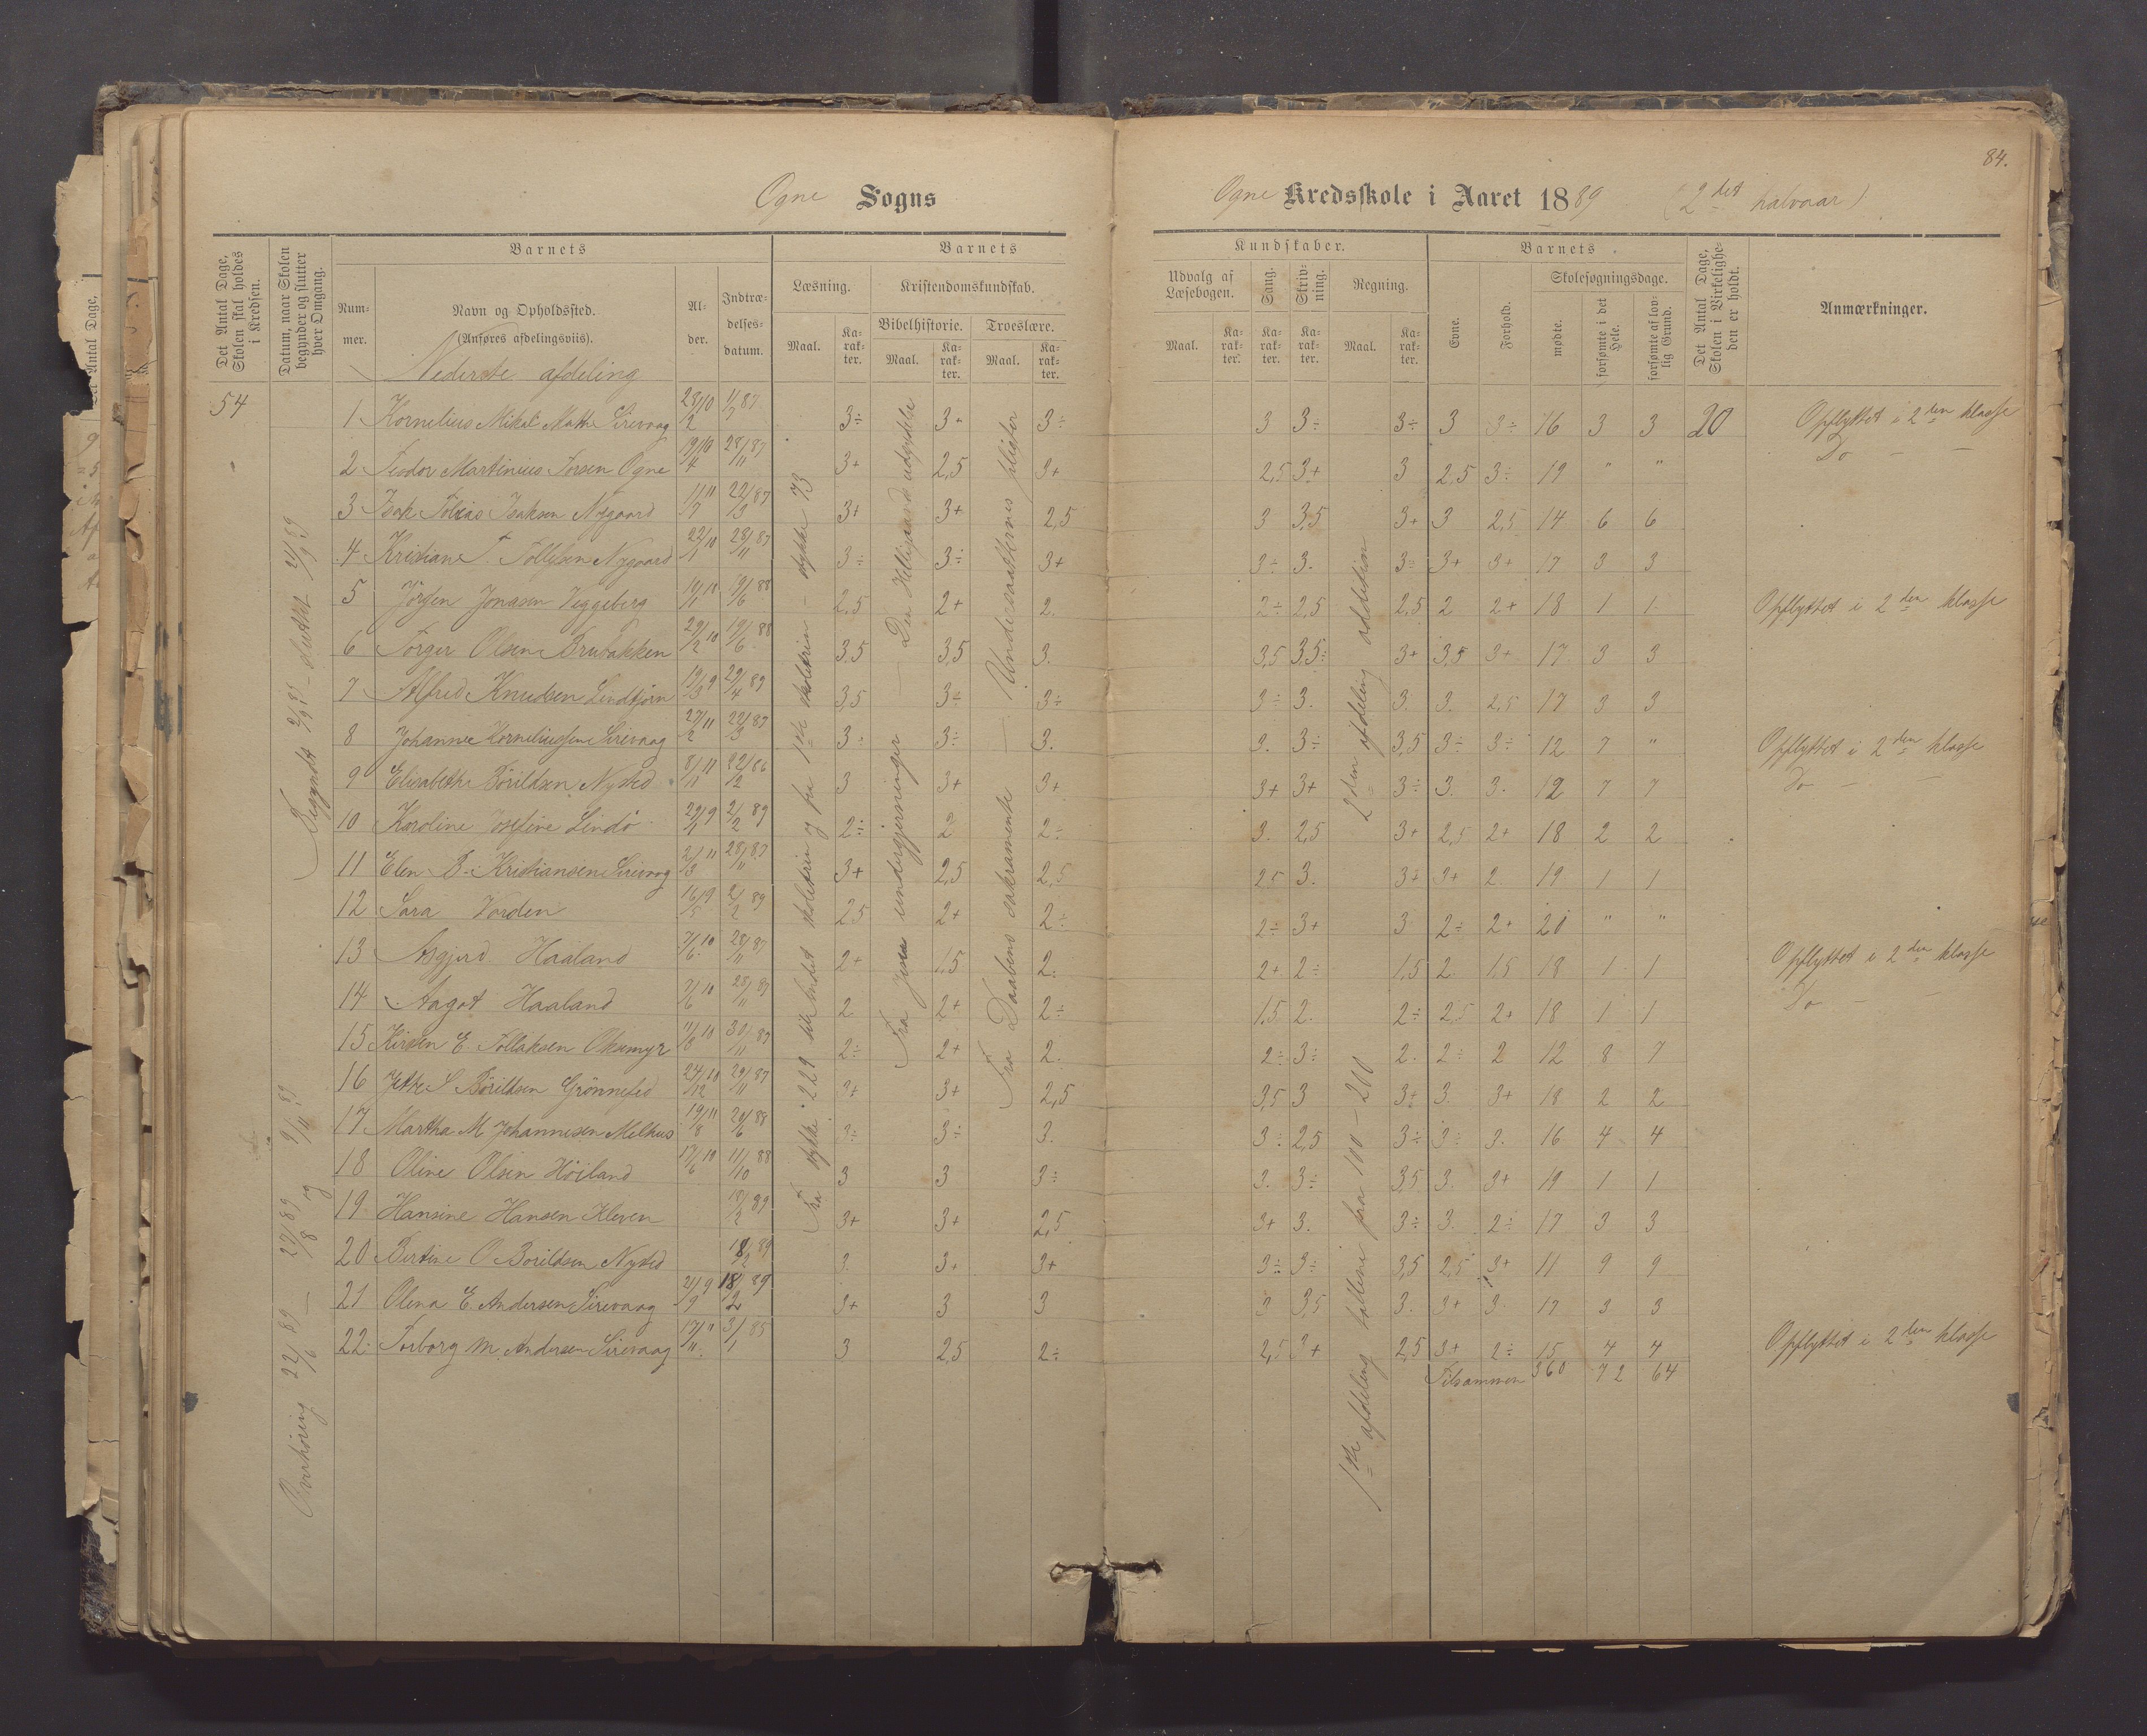 84.
Ogne Sogns
Ogne Kredsskole i Aaret 1889 (2det halvaar)
Det Antal Dage, Skolen skal holdes i Kredsen.
Datum, naar Skolen begynder og slutter hver Omgang.
Barnets
Nummer.
Navn og Opholdssted.
(Anføres afdelingsviis).
Alder.
Indtrædelsesdatum.
Barnets
Læsning.
Kristendomskundskab.
Bibelhistorie. Troeslære.
Maal. Karakter. Maal. Karakter. Maal. Karakter.
Kundskaber.
Udvalg af Læsebogen. Sang. Skrivning. Regning.
Maal. Karakter. Karakter. Karakter. Maal. Karakter.
Barnets
Evne. Forhold.
Skolesøgningsdage.
mødte. forsømte i det Hele. forsømte af lovlig Grund.
Det Antal Dage, Skolen i Virkeligheden er holdt.
Anmærkninger.
Nederste afdeling
54
Begyndt 2/9 89 - sluttet 21/9 89
Overhøring 22/6 89 - 27/8 89 og 9/11 89
Fra stykke 229 til bindet skoletrin og fra 1ste skoletrin - stykke 73
Fra Jesu undergjerninger - Den Helligaands udgydelse
Fra Daabens sakramente - Undersaatternes pligter
1ste afdeling tallene fra 100 - 200
2den afdeling addition
1 Kornelius Mikal Mathe Sirevaag 23/2 10 1/7 87 3÷ 3+ 3÷ 3 3÷ 3÷ 3 3÷ 16 3 3 20 Opflyttet i 2den klasse
2 Teodor Martinius Torsen Ogne 19/4 10 28/11 87 3+ 2,5 3+ 2,5 3+ 3 2,5 3÷ 19 " " Do -
3 Isak Tobias Isaksen Nygaard 11/7 11 22/3 87 3+ 3+ 2,5 3 3,5 3+ 3 2,5 14 6 6
4 Kristiane T. Tollefsen Nygaard 22/1 10 28/11 87 3÷ 3÷ 3+ 3÷ 3. 3÷ 3+ 3+ 17 3 3
5 Jörgen Jonasen Veggeberg 19/1 10 19/6 88 2,5 2+ 2. 2÷ 2,5 2,5 2 2+ 18 1 1 Opflyttet i 2den klasse
6 Torger Olsen Brubakken 29/12 10 19/6 88 3,5 3,5 3. 3,5 3,5÷ 3+ 3,5 3+ 17 3 3
7 Alfred Knudsen Lindtjörn 19/3 9 29/4 89 3,5 3÷ 3÷ 3÷ 3. 3. 3. 2,5 17 3 3
8 Johanne Korneliussen Sirevaag 27/2 11 22/3 87 3÷ 3÷ 3. 3. 3÷ 3,5 3÷ 3÷ 12 7 " Opflyttet i 2den klasse
9 Elisabethe Börildsen Nysted 8/11 11 22/12 86 3 3+ 3+ 3+ 3+ 3÷ 3. 3. 12 7 7 Do -
10 Karoline Josefine Lindö 29/1 9 2/2 89 2÷ 2 2÷ 3. 2,5 3+ 2,5 2+ 18 2 2
11 Elen B. Kristiansen Sirevaag 2/3 11 28/11 87 3+ 2,5 2,5 2,5 3. 3+ 3+ 2 19 1 1
12 Sara Varden 16/5 9 2/2 89 2,5 2+ 2÷ 2÷ 3+ 3 2÷ 2+ 20 " "
13 Asgjerd Haaland 7/6 10 28/11 87 2+ 1,5 2. 2+ 2÷ 1,5 2 1,5 18 1 1 Opflyttet i 2den klasse
14 Aagot Haaland 7/6 10 28/11 87 2. 2+ 2÷ 1,5 2. 2÷ 2,5 2+ 18 1 1 Do -
15 Kirsten E. Tollaksen Oksemyr 11/3 10 30/11 87 2÷ 2+ 2. 2÷ 3÷ 2. 2÷ 2 12 8 7
16 Jette S Börildsen Grönnefed 24/12 10 29/11 87 3+ 3+ 2,5 3,5 3 3+ 3. 3+ 18 2 2
17 Martha M. Johannesen Melhus 19/8 11 20/6 88 3÷ 3÷ 3. 3÷ 2,5 3÷ 3÷ 3. 16 4 4
18 Oline Olsen Höiland 17/6 10 11/10 88 3 3 3÷ 3. 3÷ 3,5 3. 3+ 19 1 1
19 Hansine Hansen Kleven 18/2 89 3+ 3+ 2,5 3+ 3. 3÷ 3. 2÷ 17 3 3
20 Bertine O Borildsen Nysted 18/2 89 3. 3+ 3+ 3÷ 3÷ 3,5 2,5 3+ 11 9 9
21 Olena E. Andersen Sirevaag 21/9 9 18/2 89 3+ 3 3 3 3,5 3. 3+ 3. 17 3 3
22. Torborg M. Andersen Sirevaag 17/11 3/1 85 3 2,5 2÷ 2,5 3+ 2,5 3+ 2÷ 15 4 4 Opflyttet i 2den klasse
Tilsammen 360 72 64